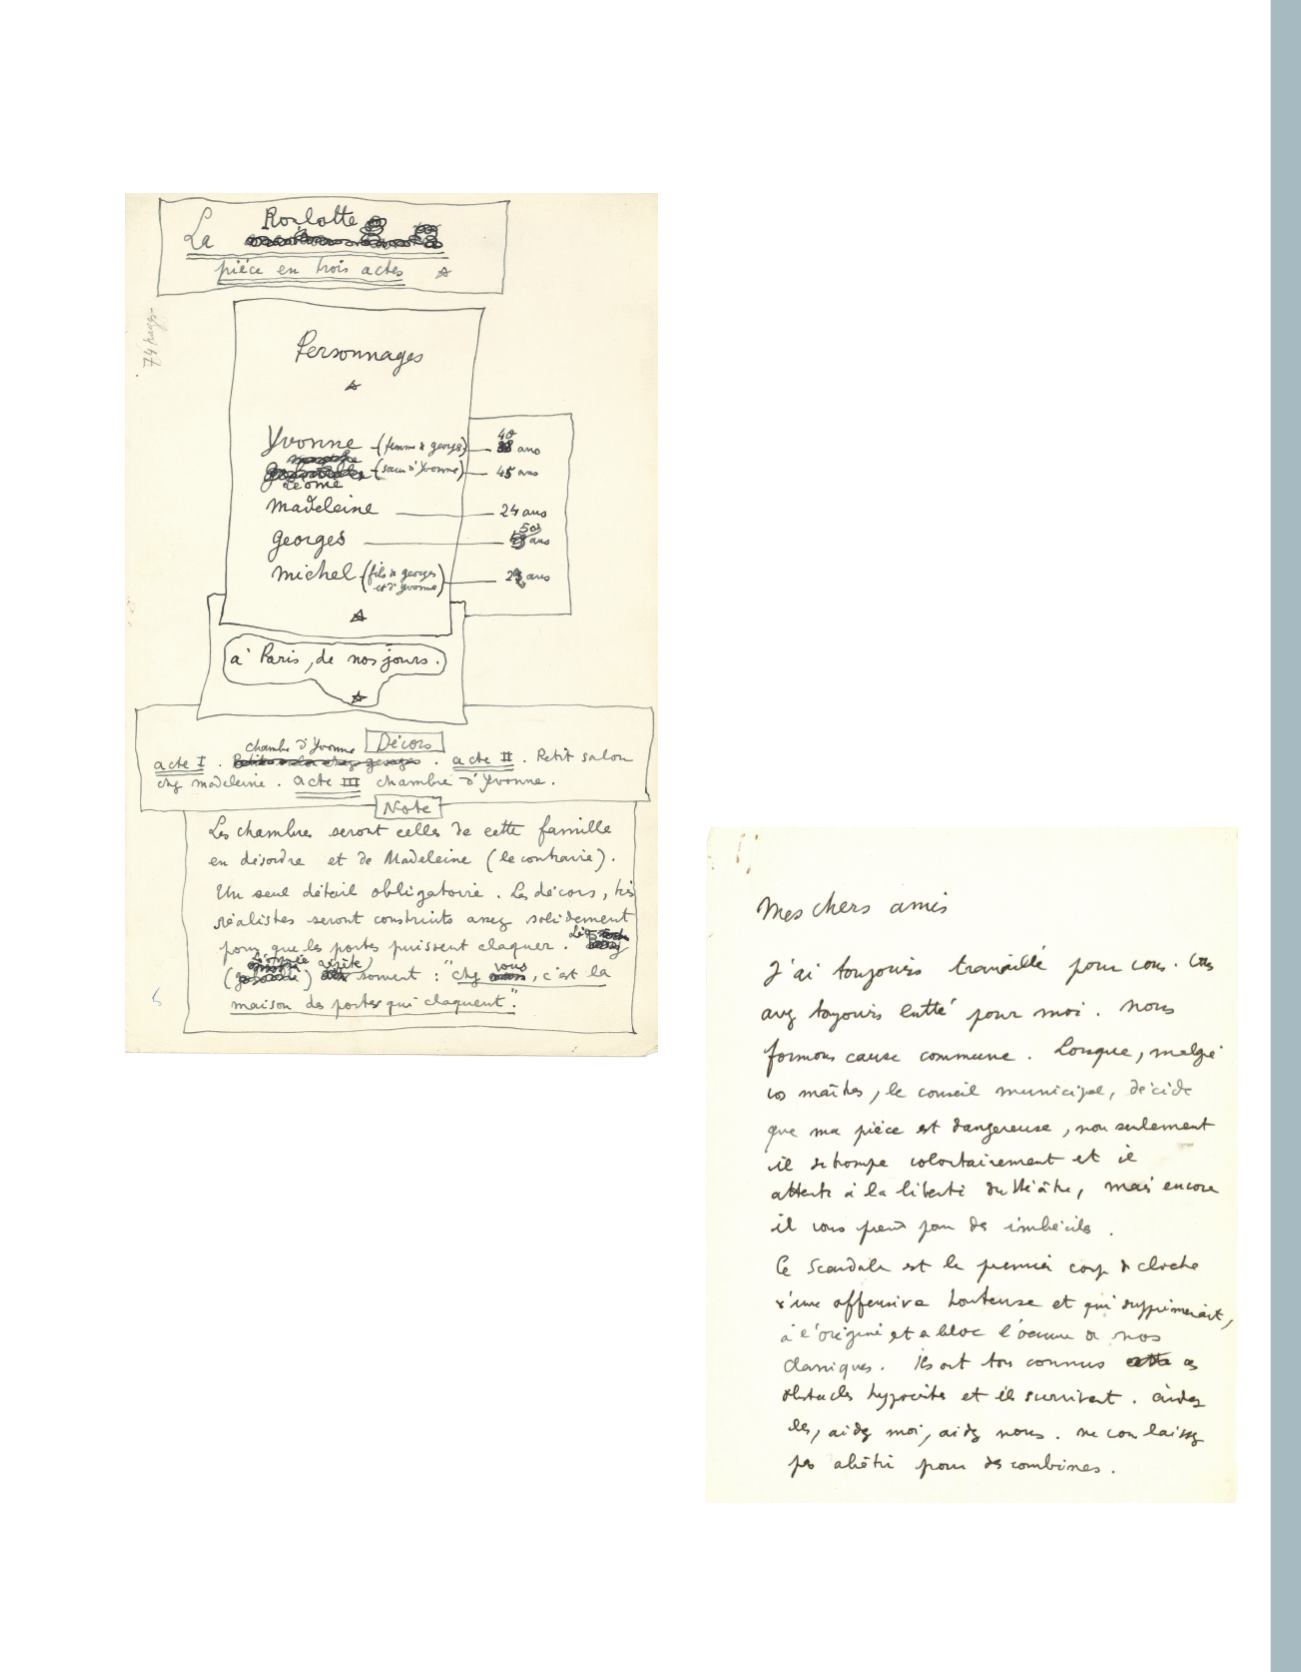 La Roulotte
pièce en trois actes
74 pages
Personnages
Yvonne (femme de georges) — 40 ans
Léonie (sœur d'Yvonne) — 45 ans
Madeleine — 24 ans
georges — 50 ans
michel (fils de georges et d'Yvonne) — ans
à Paris, de nos jours.
Décors
chambre d'Yvonne
acte I. acte II. Petit salon
chez madeleine. acte III chambre d'Yvonne.
Note
Les chambres seront celles de cette famille
en désordre et de Madeleine (le contraire).
Un seul détail obligatoire. Les décors, très
réalistes seront construits assez solidement
pour que les portes puissent claquer.
(Léonie) souvent : "chez vous, c'est la
maison des portes qui claquent".
Mes chers amis
J'ai toujours travaillé pour vous. Vous
avez toujours lutté pour moi. Nous
formons cause commune. Lorsque, malgré
vos maîtres, le conseil municipal, décide
que ma pièce est dangereuse, non seulement
il se trompe volontairement et il
attente à la liberté du théâtre, mais encore
il vous prend pour des imbéciles.
Ce scandale est le premier coup de cloche
d'une offensive honteuse et qui supprimerait,
à l'origine et a bloc l'œuvre de nos
classiques. Ils ont tous connus ces
obstacles hypocrites et ils survivent. aidez
les, aidez moi, aidez nous. ne vous laissez
pas abêtir pour des combines.